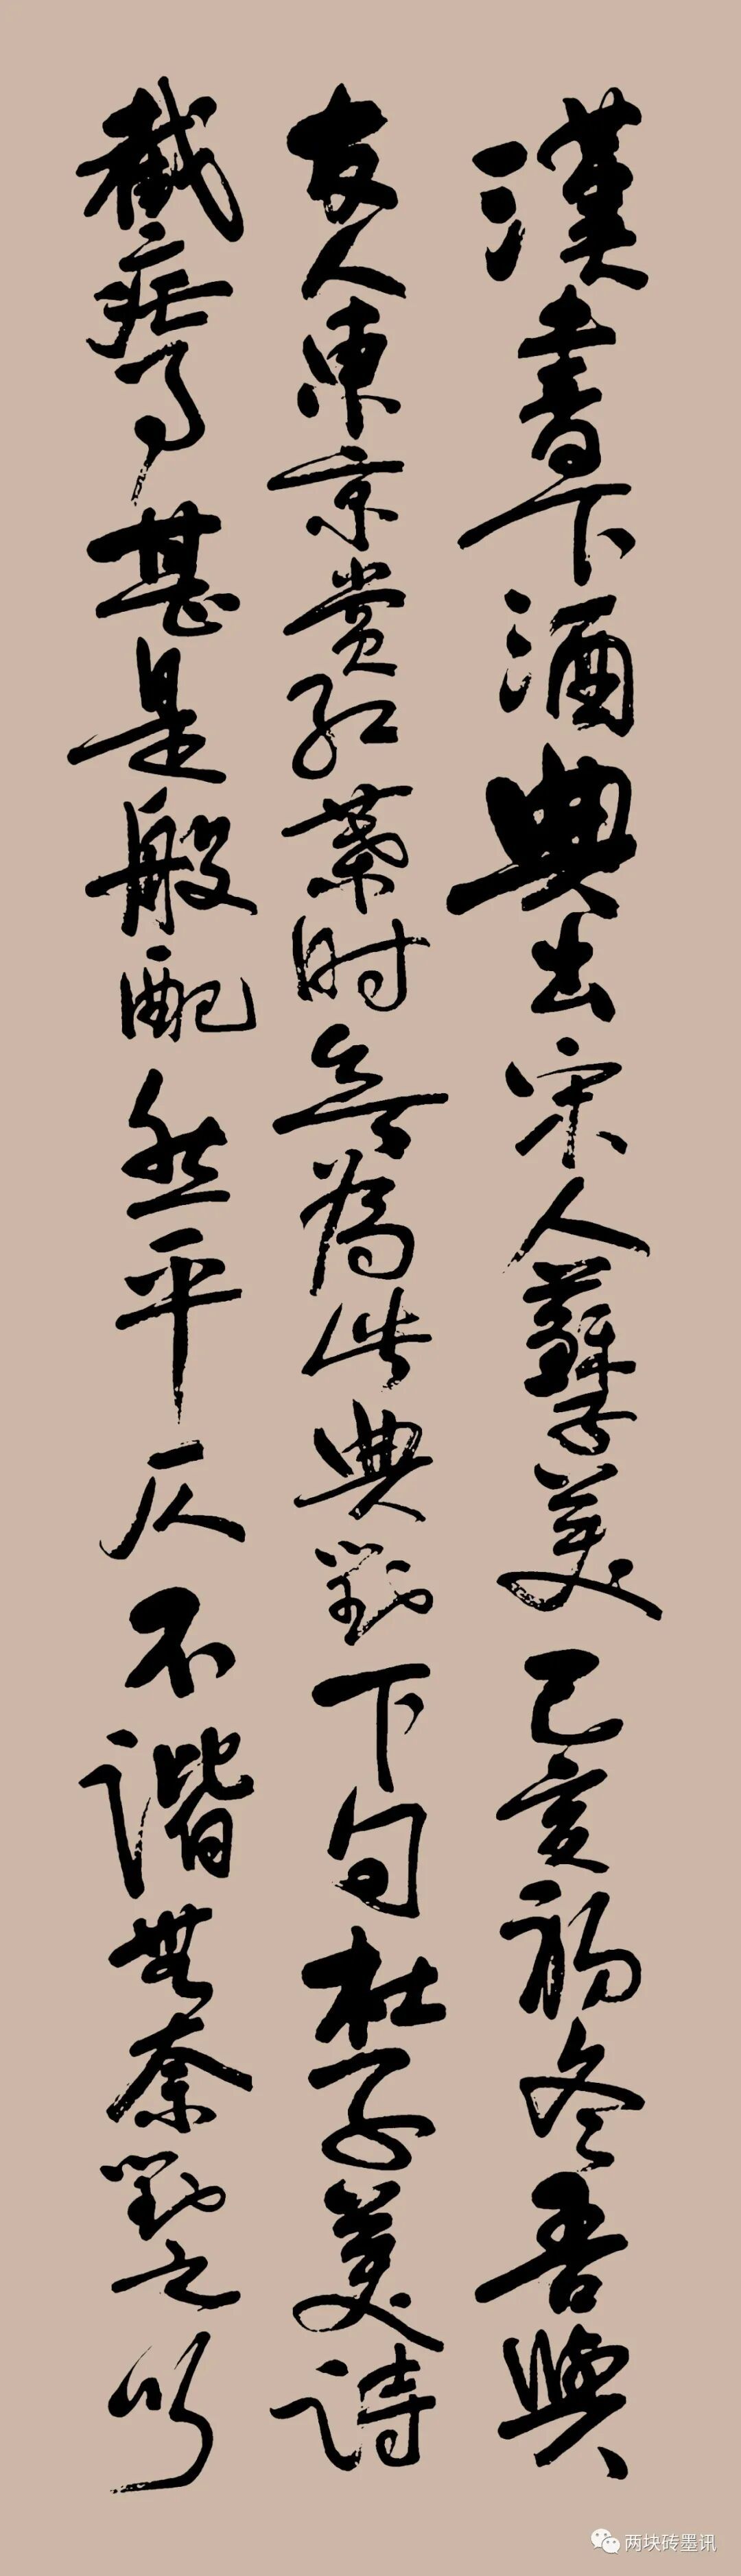 漢書下酒典出宋人蘇子美己亥初冬吾與
友人東京賞紅葉时為此典對下句杜子美詩
截疟事甚是般配然平仄不諧無奈對之以
两块砖墨讯